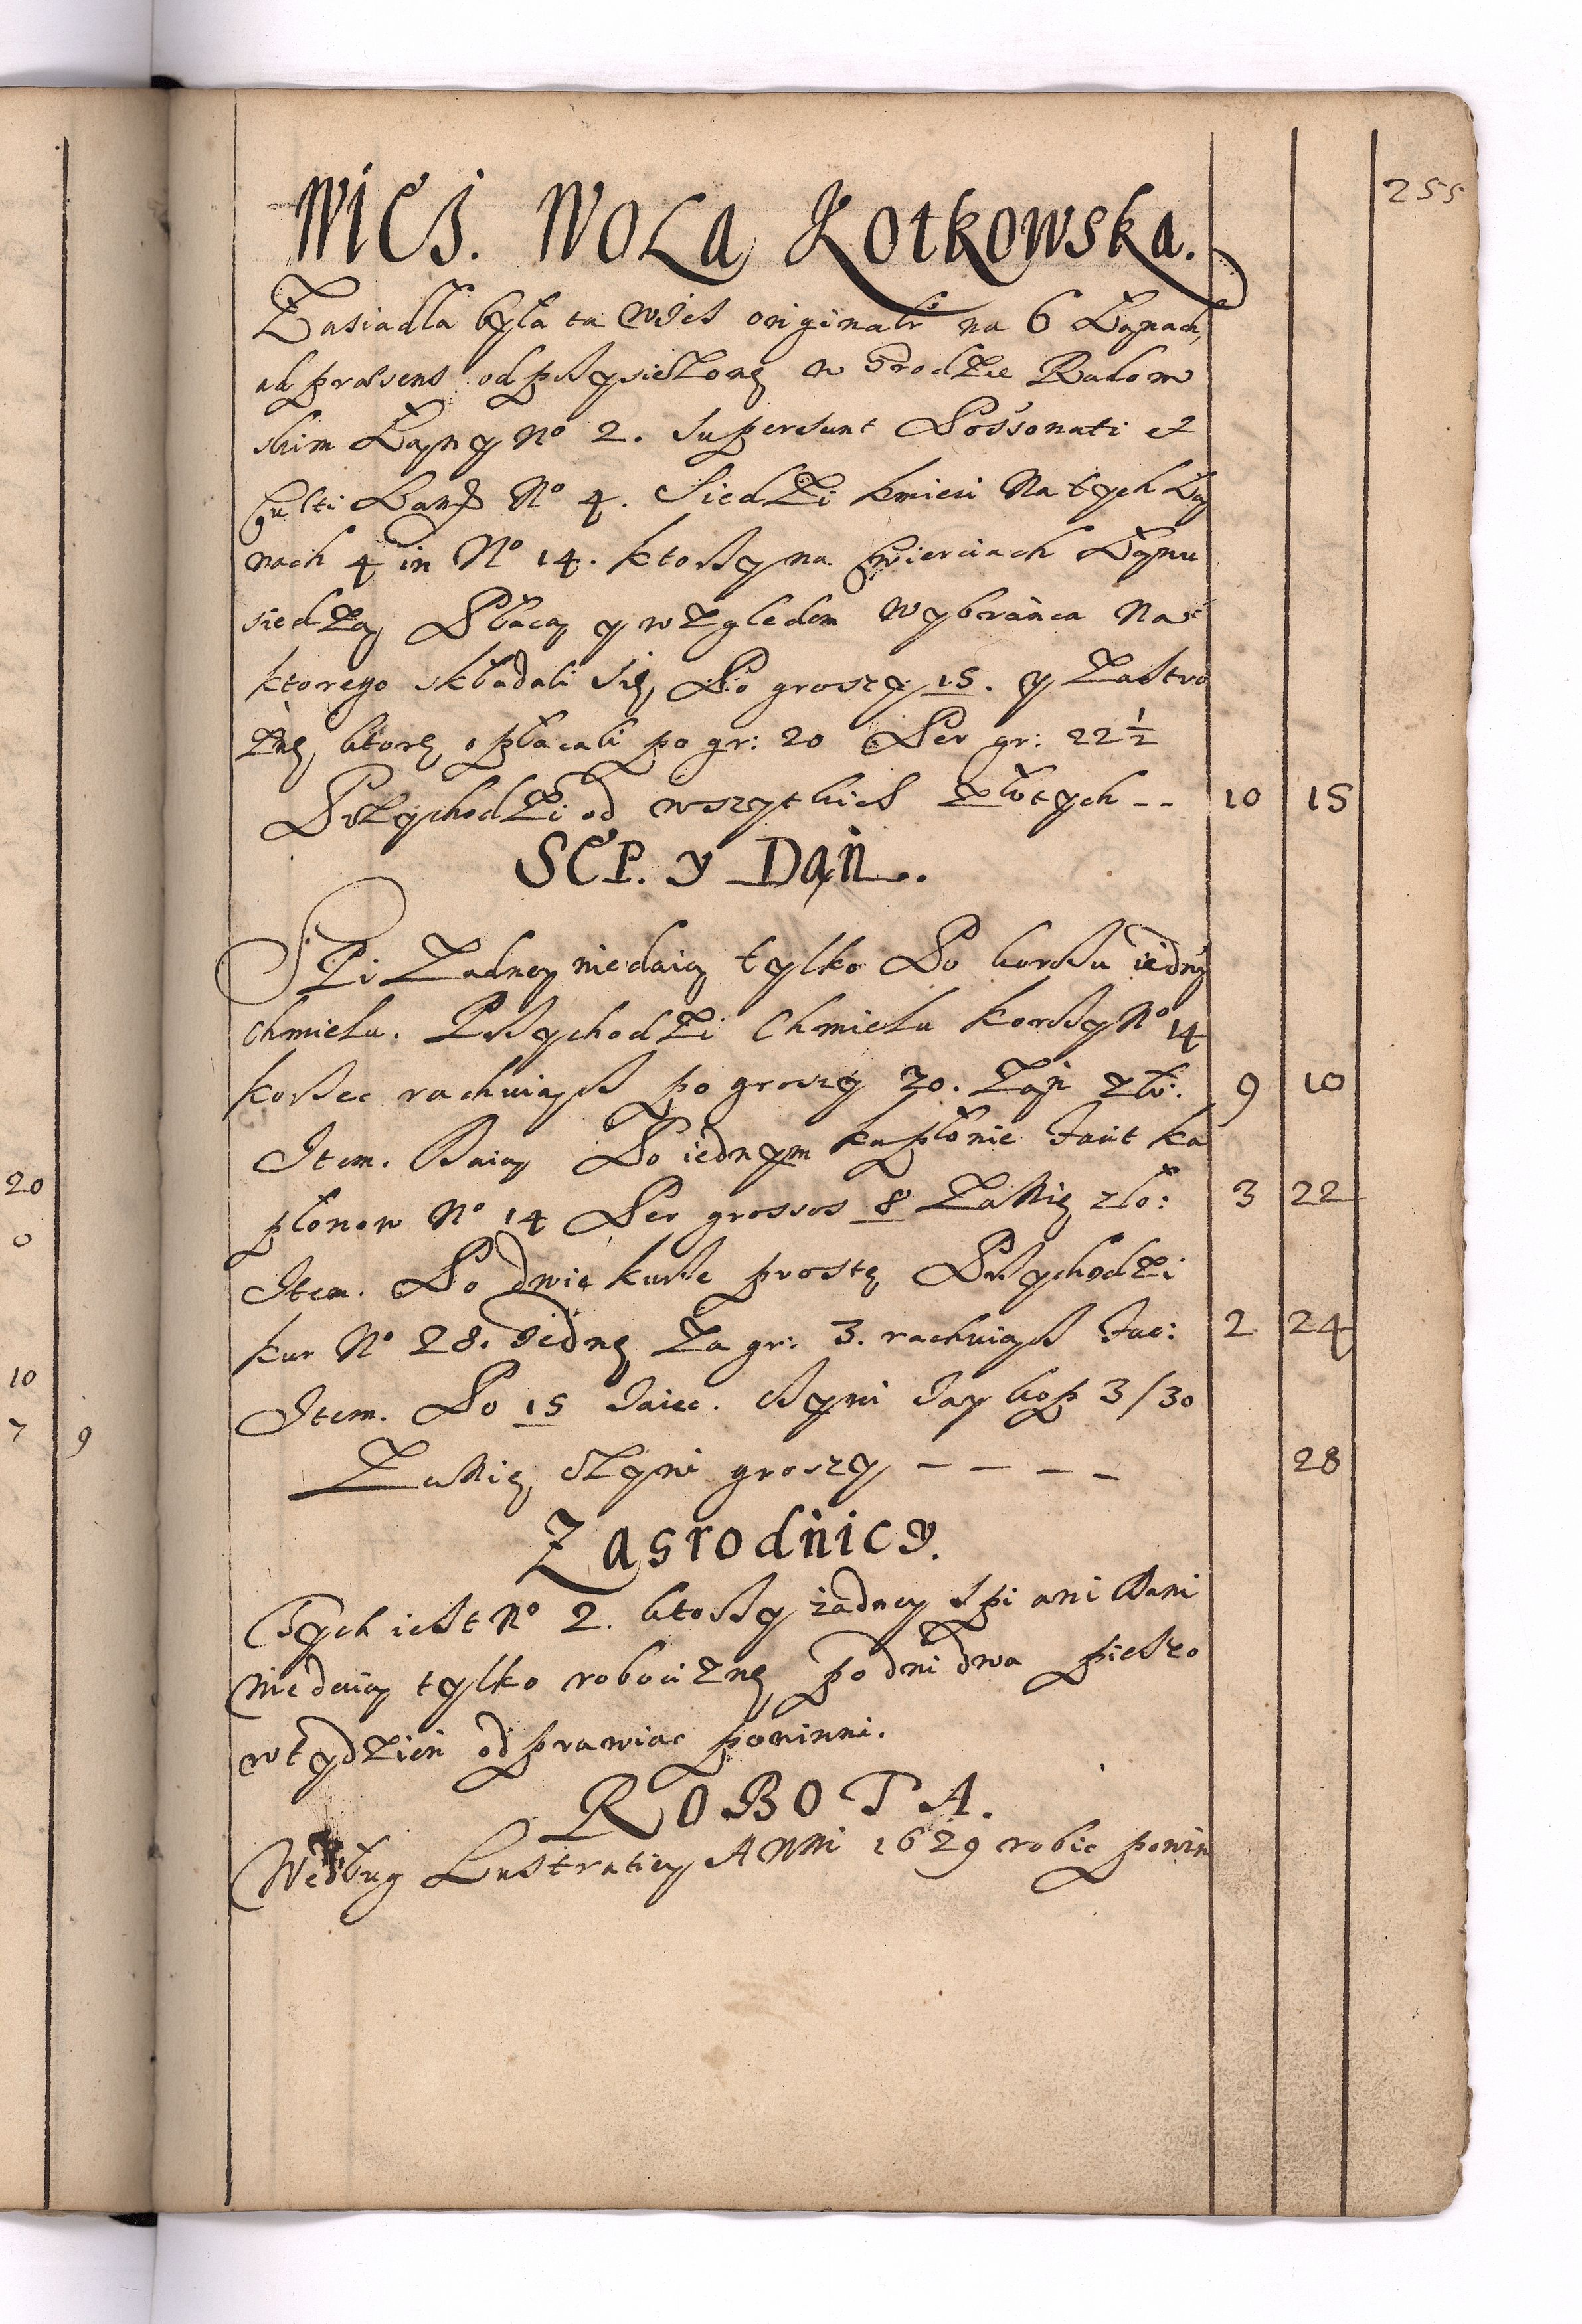 255
Wieś. Wola Kotkowska.
Zasiadła była ta wieś originalr na 6 Łanach,
ad præsens odprzysiężone w Grodzie Radom
skim Łany No 2. supersunt Possonati et
Culti Łany No 4. Siedzi kmieci Na tych Ła
nach 4 in No 14. ktorzy na cwierciach Łanu
siedzą, Płacą y względem wybrańca Na
ktorego składali się, Po groszy 15. y Za stro
żne, ktore opłacali po gr: 20 Per gr: 22 1/2
Przychodzi od wszytkich Złotych -- 10 15
SEP. y Dań.
SPi Zadney niedaią tylko Po korcu iedny
Chmielu. Przychodzi Chmielu korcy No 14
korzec rachuiąc po groszy 20. Zań Zło: 9 10
Item. Daią Po iednym kapłonie Facit ka
płonow No 14 Per grossos 8 Zakię zło: 3 22
Item. Po dwie kurze proste, Przychodzi
kur No 28. Jednę Za gr: 3. rachuiąc Fac: 2 24
Item. Po 15 Jaiec. czyni Jay kop 3/30
Zakię, czyni groszy - - - - 28
Zagrodnicy.
Tych iest No 2. ktorzy żadney Spi ani Dani
nie daią tylko robociznę, po dni dwa pieszo
w tydzień odprawiac powinni.
ROBOTA.
Według Lustratiey Anni 1629 robic powin
20
0
10
7 9